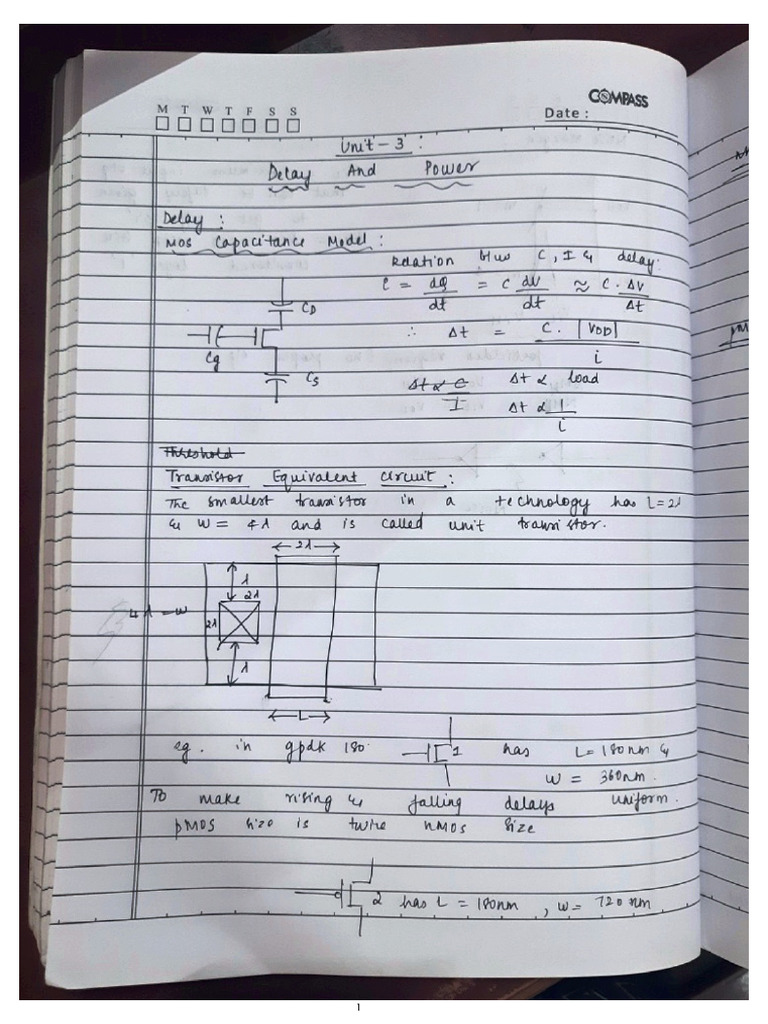 COMPASS
M T W T F S S
Date :
Unit - 3 :
Delay And Power
Delay :
MOS Capacitance Model :
Relation b/w C, I & delay:
i = dQ/dt = C dV/dt ≈ C. ΔV/Δt
CD
∴ Δt = C. |VDD| / i
Cg
CS
Δt ∝ C/I
Δt ∝ load
Δt ∝ 1/i
Threshold
Transistor Equivalent circuit :
The smallest transistor in a technology has L = 2λ
& W = 4λ and is called unit transistor.
2λ
λ
2λ
4λ = W
2λ
λ
L
eg. in gpdk 180. 1 has L = 180nm &
W = 360nm.
To make rising & falling delays uniform.
pMOS size is twice nMOS size
2 has L = 180nm, W = 720 nm
1